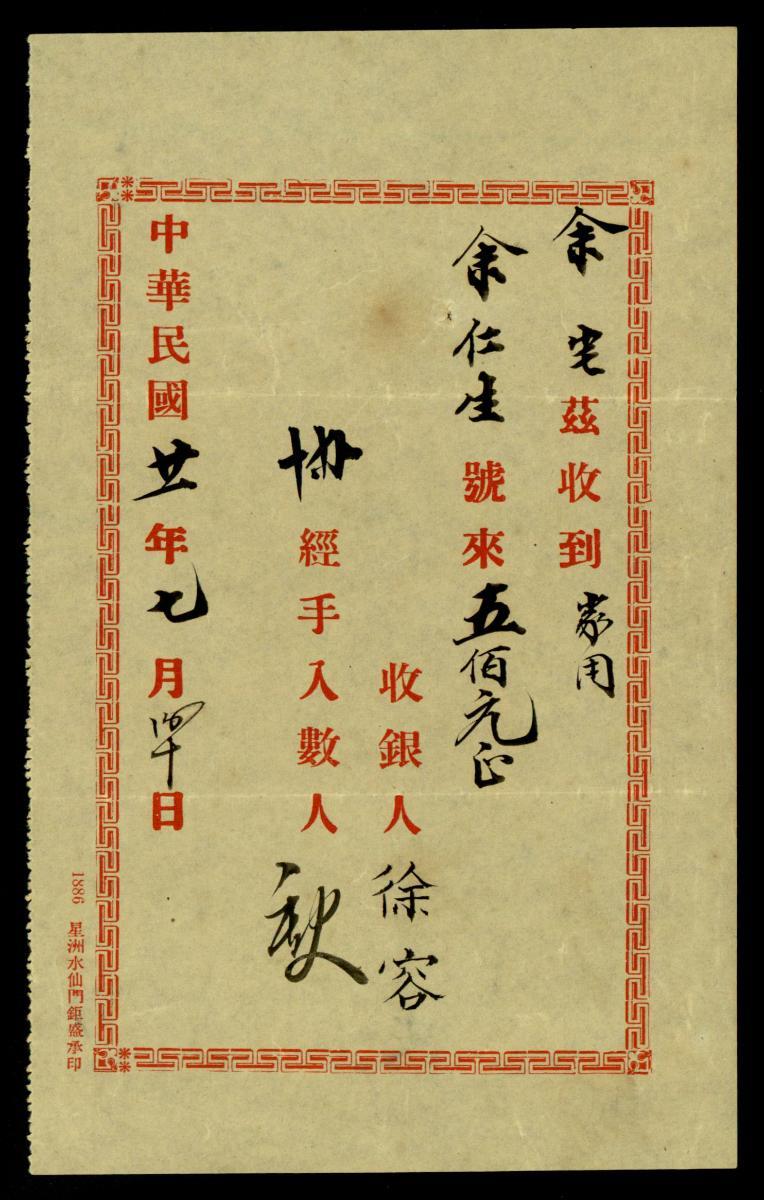 余宅茲收到家用
余仁生號來五佰元正
收銀人徐容
協經手入數人
中華民國廿一年七月日
1886 星洲水仙門鉅盛承印